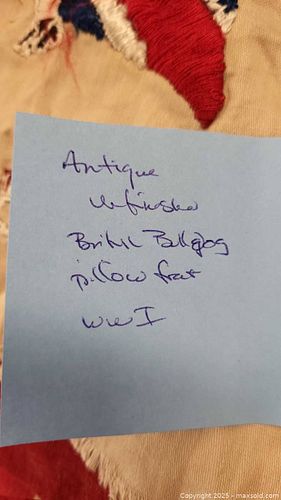 Antique
Unfinished
British Bulldog
pillow front
WWI
Copyright 2025 - maxsold.com